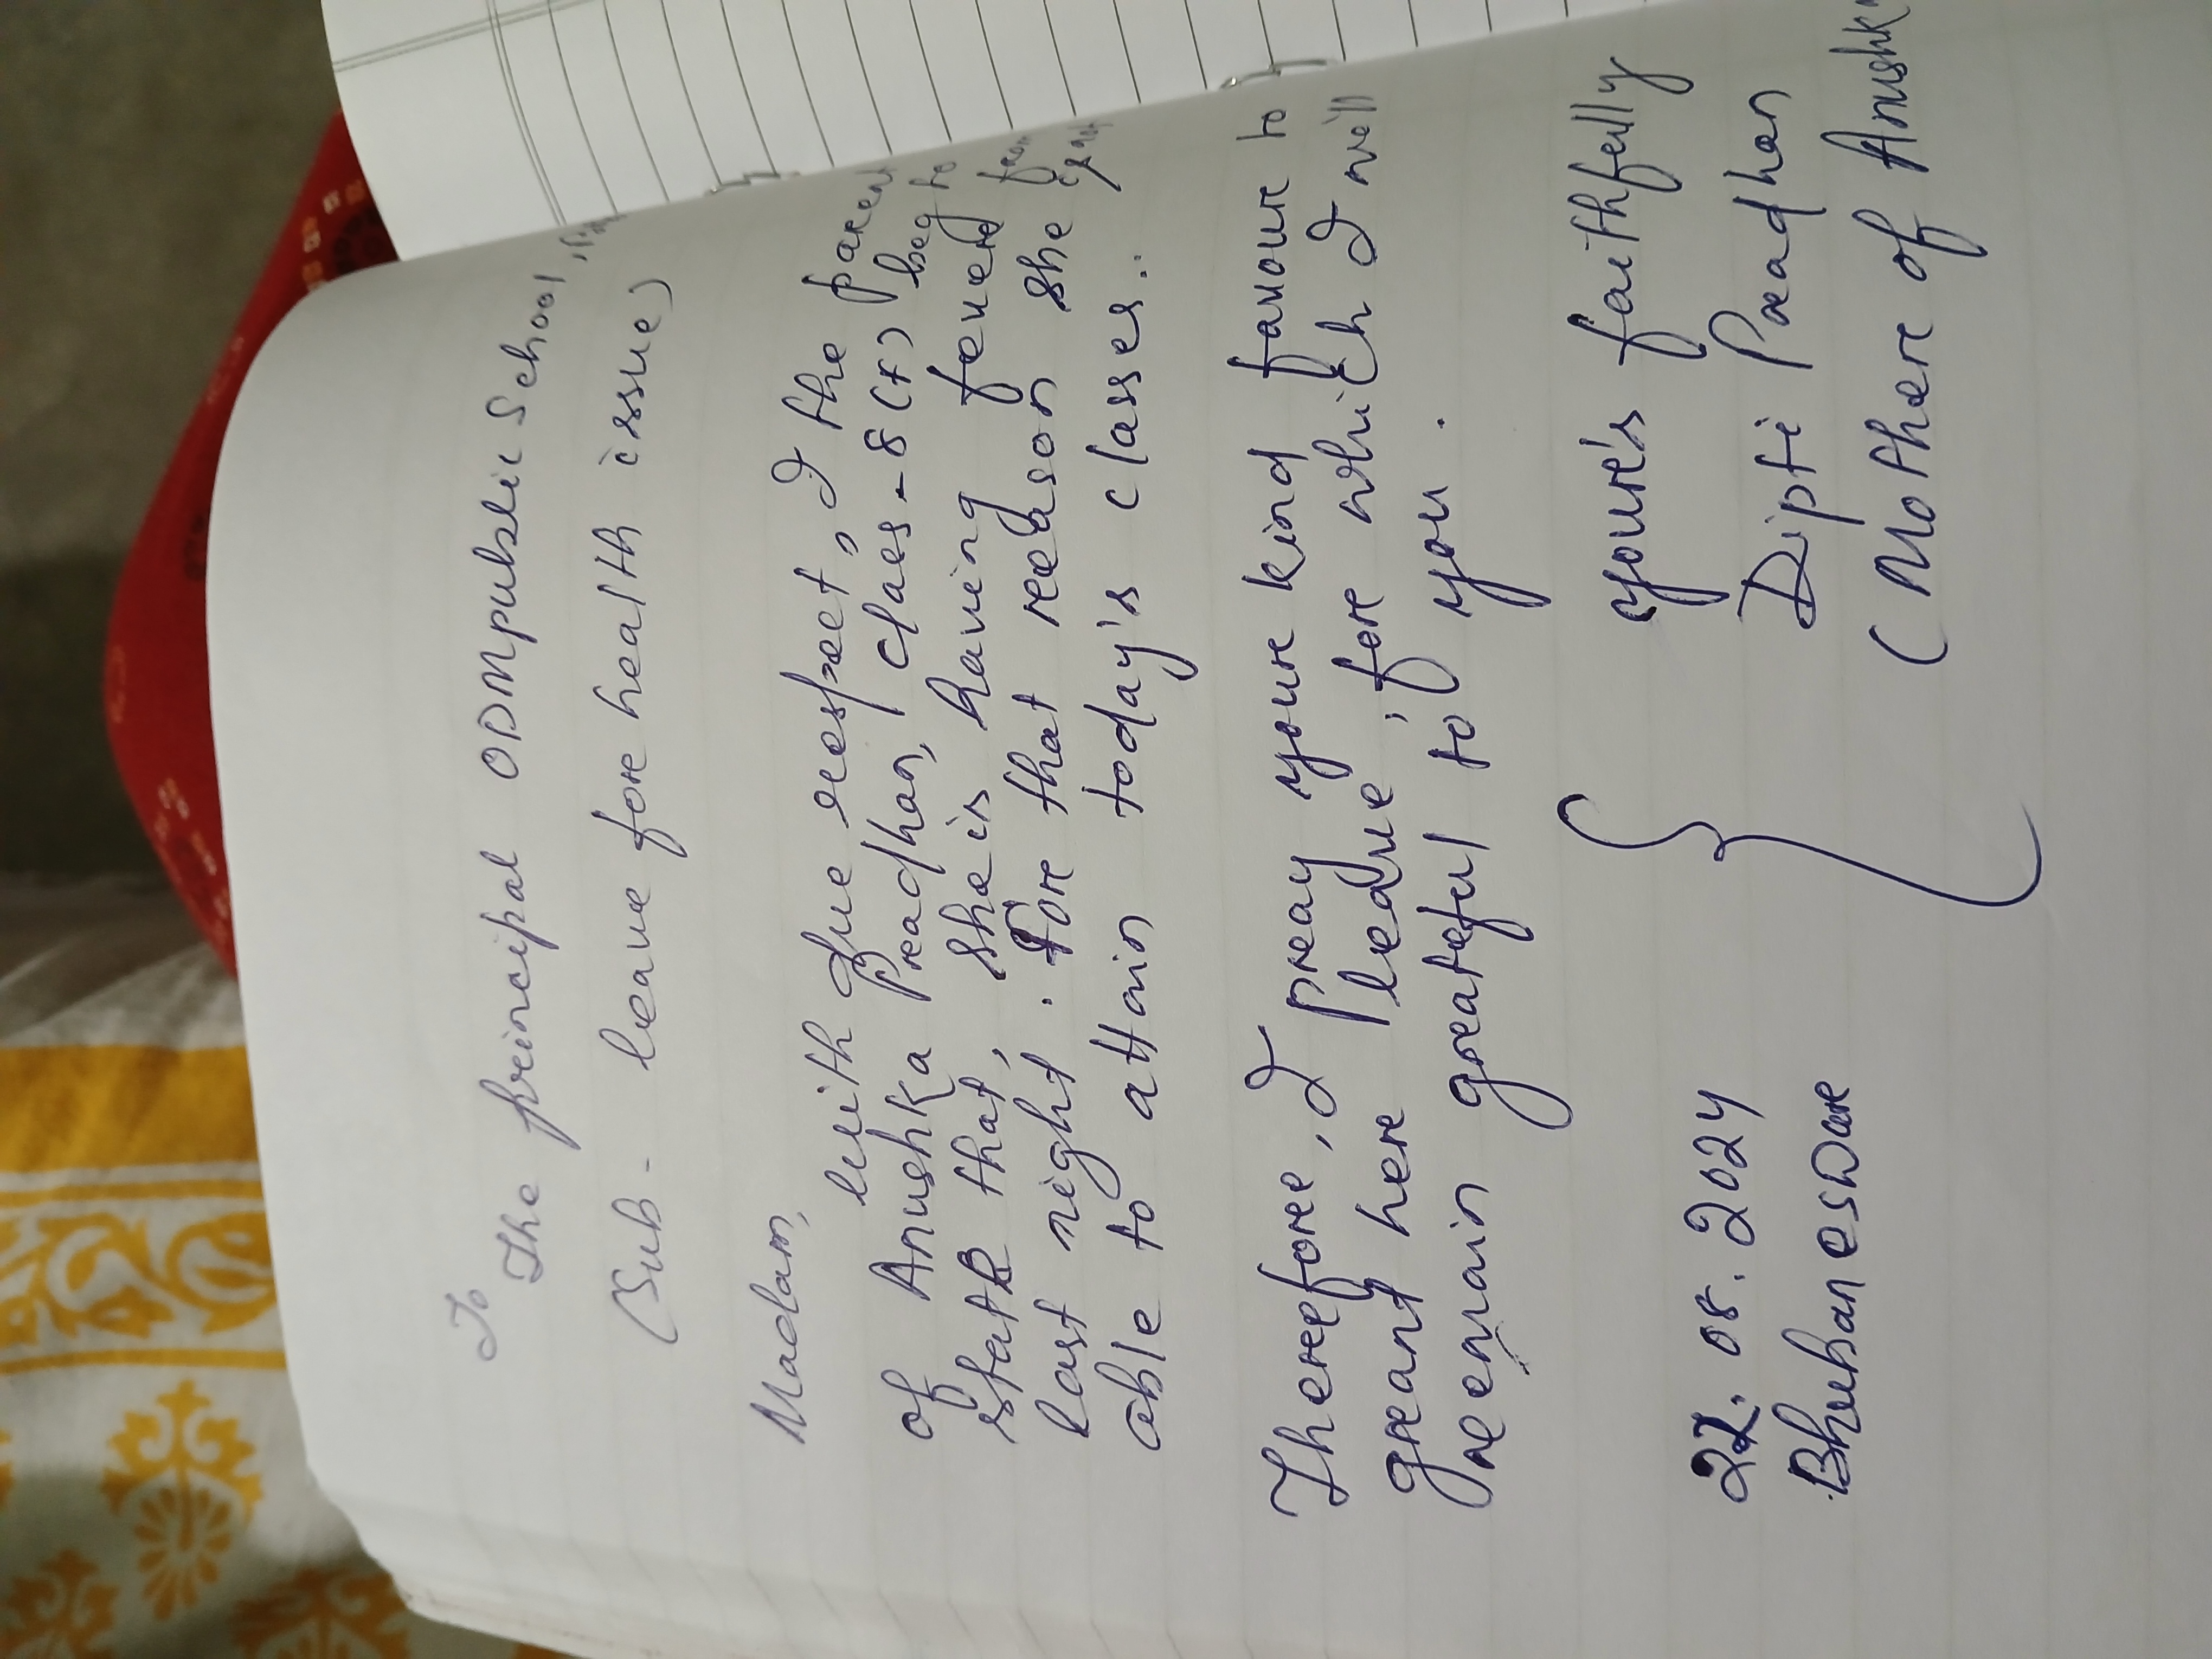 To
The principal ODM public School,
(Sub- leave fore health issue)
Madam,
with due respect, I the parent
of Anushka Pradhan, class-8(F) beg to
state that, she is having fevere from
last night. Fore that reason she
able to attain today's classes..
Therefore, I pray youre kind favoure to
grant here leave, fore which I will
remain grateful to you.
youre's faithfully
22.08.2024 Dipti Pradhan
Bhubaneswar (Mothere of Anushk